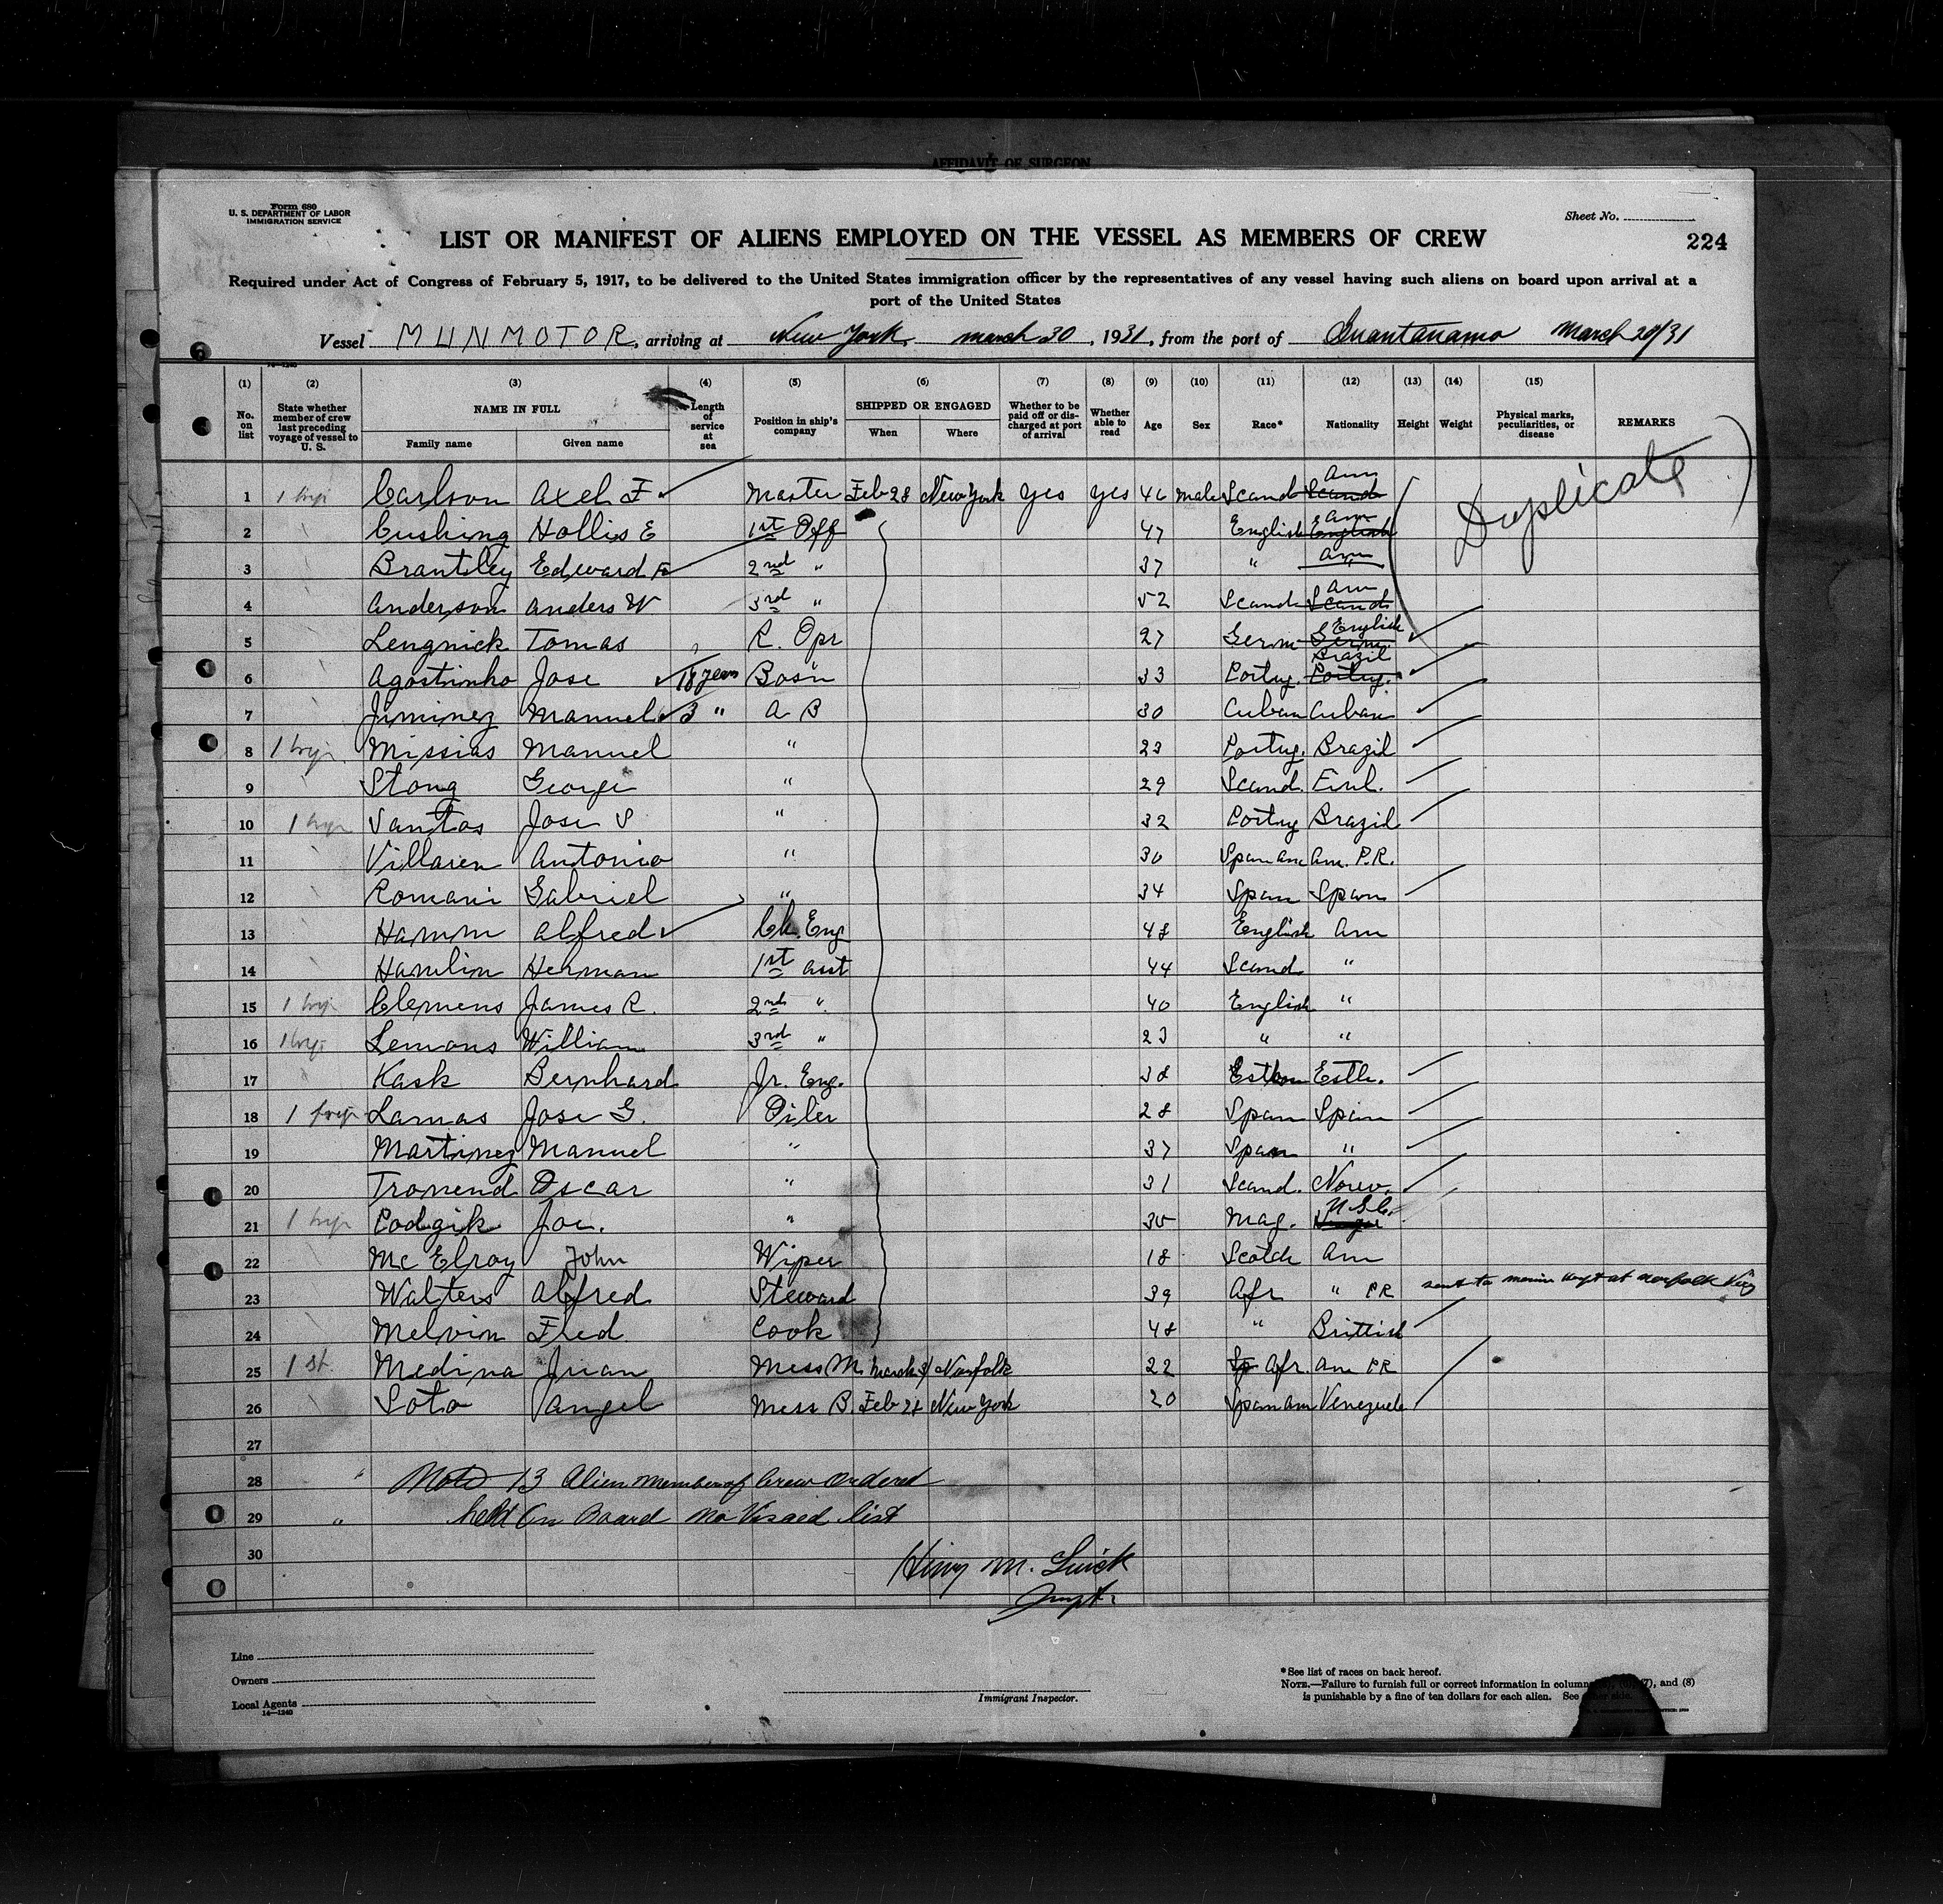 AFFIDAVIT OF SURGEON
Form 680
U. S. DEPARTMENT OF LABOR
IMMIGRATION SERVICE
Sheet No.
LIST OR MANIFEST OF ALIENS EMPLOYED ON THE VESSEL AS MEMBERS OF CREW
224
Required under Act of Congress of February 5, 1917, to be delivered to the United States immigration officer by the representatives of any vessel having such aliens on board upon arrival at a
port of the United States
Vessel MUNMOTOR, arriving at New York march 30, 1931, from the port of Guantanamo March 20/31
14-1240
(1) (2) (3) (4) (5) (6) (7) (8) (9) (10) (11) (12) (13) (14) (15)
No. on list State whether member of crew last preceding voyage of vessel to U. S. NAME IN FULL Family name Given name Length of service at sea Position in ship's company SHIPPED OR ENGAGED When Where Whether to be paid off or discharged at port of arrival Whether able to read Age Sex Race* Nationality Height Weight Physical marks, peculiarities, or disease REMARKS
Duplicate
1 Carlson Axel F Master Feb 28 New York yes yes 46 male Scand Am Scand
2 Cushing Hollis E 1st Off 47 English Am English
3 Brantley Edward F 2nd " 37 " Am
4 Anderson Anders W 3rd " 52 Scand Am Scand
5 Lengnick Tomas R. Opr 27 Germ English Germ
6 Agostinho Jose 18 years Bos'n 33 Portug. Brazil Portug.
7 Jiminez Manuel 3 " A B 30 Cuban Cuban
8 Missias Manuel " 23 Portug. Brazil
9 Stong George " 29 Scand. Finl.
10 Santos Jose S " 32 Portug Brazil
11 Villaren Antonio " 30 Span Am Am. P.R.
12 Romani Gabriel " 34 Span Spain
13 Hamm Alfred Ch. Eng 48 English Am
14 Hamlin Herman 1st asst 44 Scand "
15 Clemens James R. 2nd " 40 English "
16 Lemons William 3rd " 23 " "
17 Kask Bernhard Jr. Eng. 38 Esthon Esth.
18 Lamas Jose G. Oiler 28 Span Spain
19 Martinez Manuel " 37 Span "
20 Tromend Oscar " 31 Scand. Norw.
21 Podgik Joe. " 35 Mag. U.S.C.
22 Mc Elroy John Wiper 18 Scotch Am
23 Walters Alfred Steward 39 Afr " PR sent to marine hospt at norfolk Virg
24 Melvin Fred Cook 48 " Brittish
25 1 st. Medina Juan Mess M. March Norfolk 22 Sp Afr. Am PR
26 Soto Angel Mess B. Feb 28 New York 20 Span Am Venezuela
27
28 " Note 13 Alien members of Crew ordered
29 " held On Board no Visaed list
30
M.
Line
Owners
Local Agents
14-1240
Immigrant Inspector.
*See list of races on back hereof.
NOTE.—Failure to furnish full or correct information in columns (7), and (8)
is punishable by a fine of ten dollars for each alien. See other side.